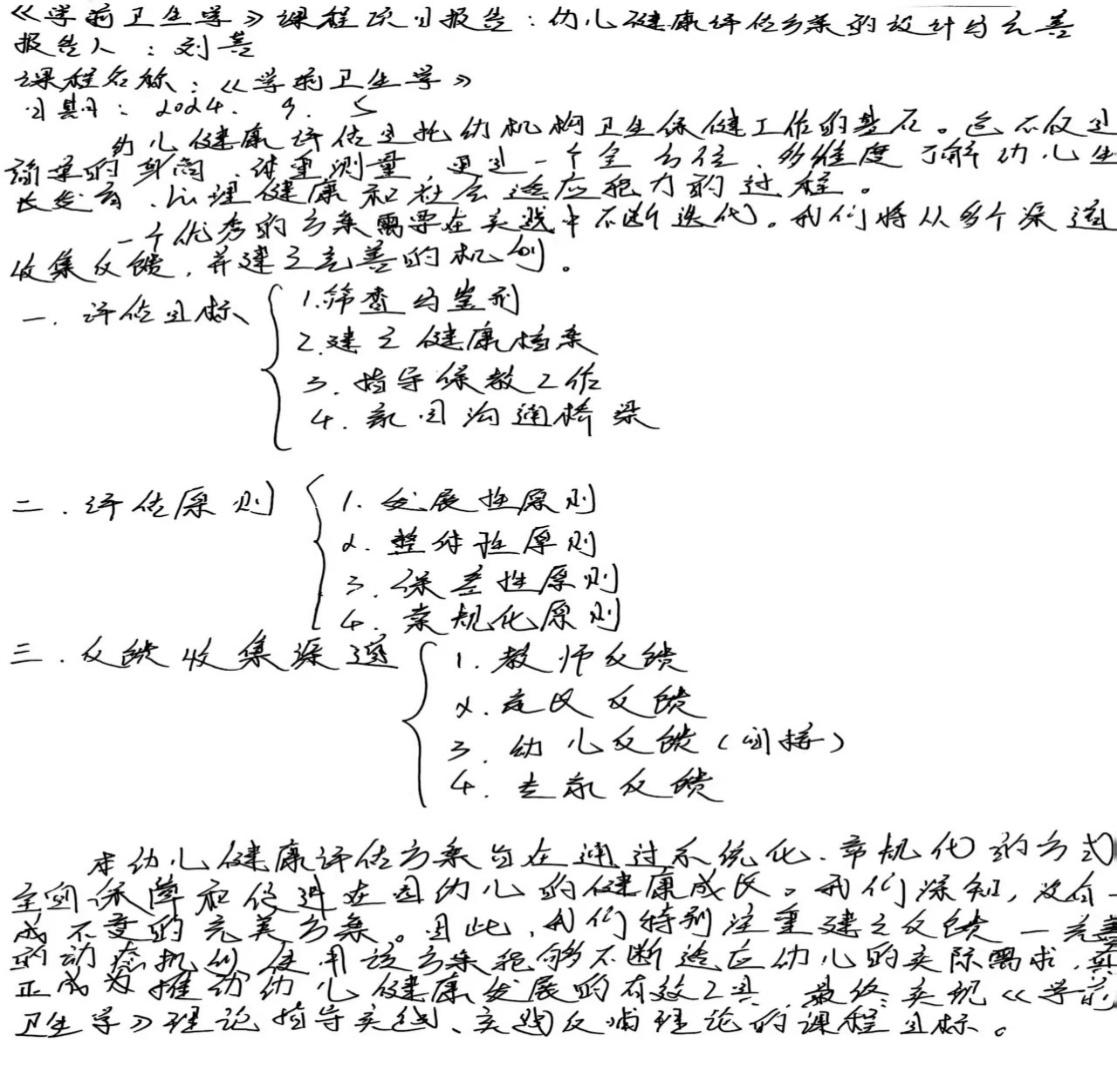 《学前卫生学》课程项目报告：幼儿健康评估方案的设计与完善
报告人：刘善
课程名称：《学前卫生学》
日期：2024. 9. 5
幼儿健康评估是托幼机构卫生保健工作的基石。它不仅是
简单的身高、体重测量，更是一个全方位、多维度了解幼儿生
长发育、心理健康和社会适应能力的过程。
一个优秀的方案需要在实践中不断迭代。我们将从多个渠道
收集反馈，并建立完善的机制。
一. 评估目标
1.筛查与鉴别
2.建立健康档案
3. 指导保教工作
4. 家园沟通桥梁
二. 评估原则
1. 发展性原则
2. 整体性原则
3. 保差性原则
4. 常规化原则
三. 反馈收集渠道
1. 教师反馈
2. 家长反馈
3. 幼儿反馈（间接）
4. 专家反馈
本幼儿健康评估方案旨在通过系统化、常规化的方式
全面保障和促进在园幼儿的健康成长。我们深知，没有一
成不变的完美方案。因此，我们特别注重建立反馈—完善
的动态机制，使用该方案能够不断适应幼儿的实际需求，真
正成为推动幼儿健康发展的有效工具，最终实现《学前
卫生学》理论指导实践、实践反哺理论的课程目标。